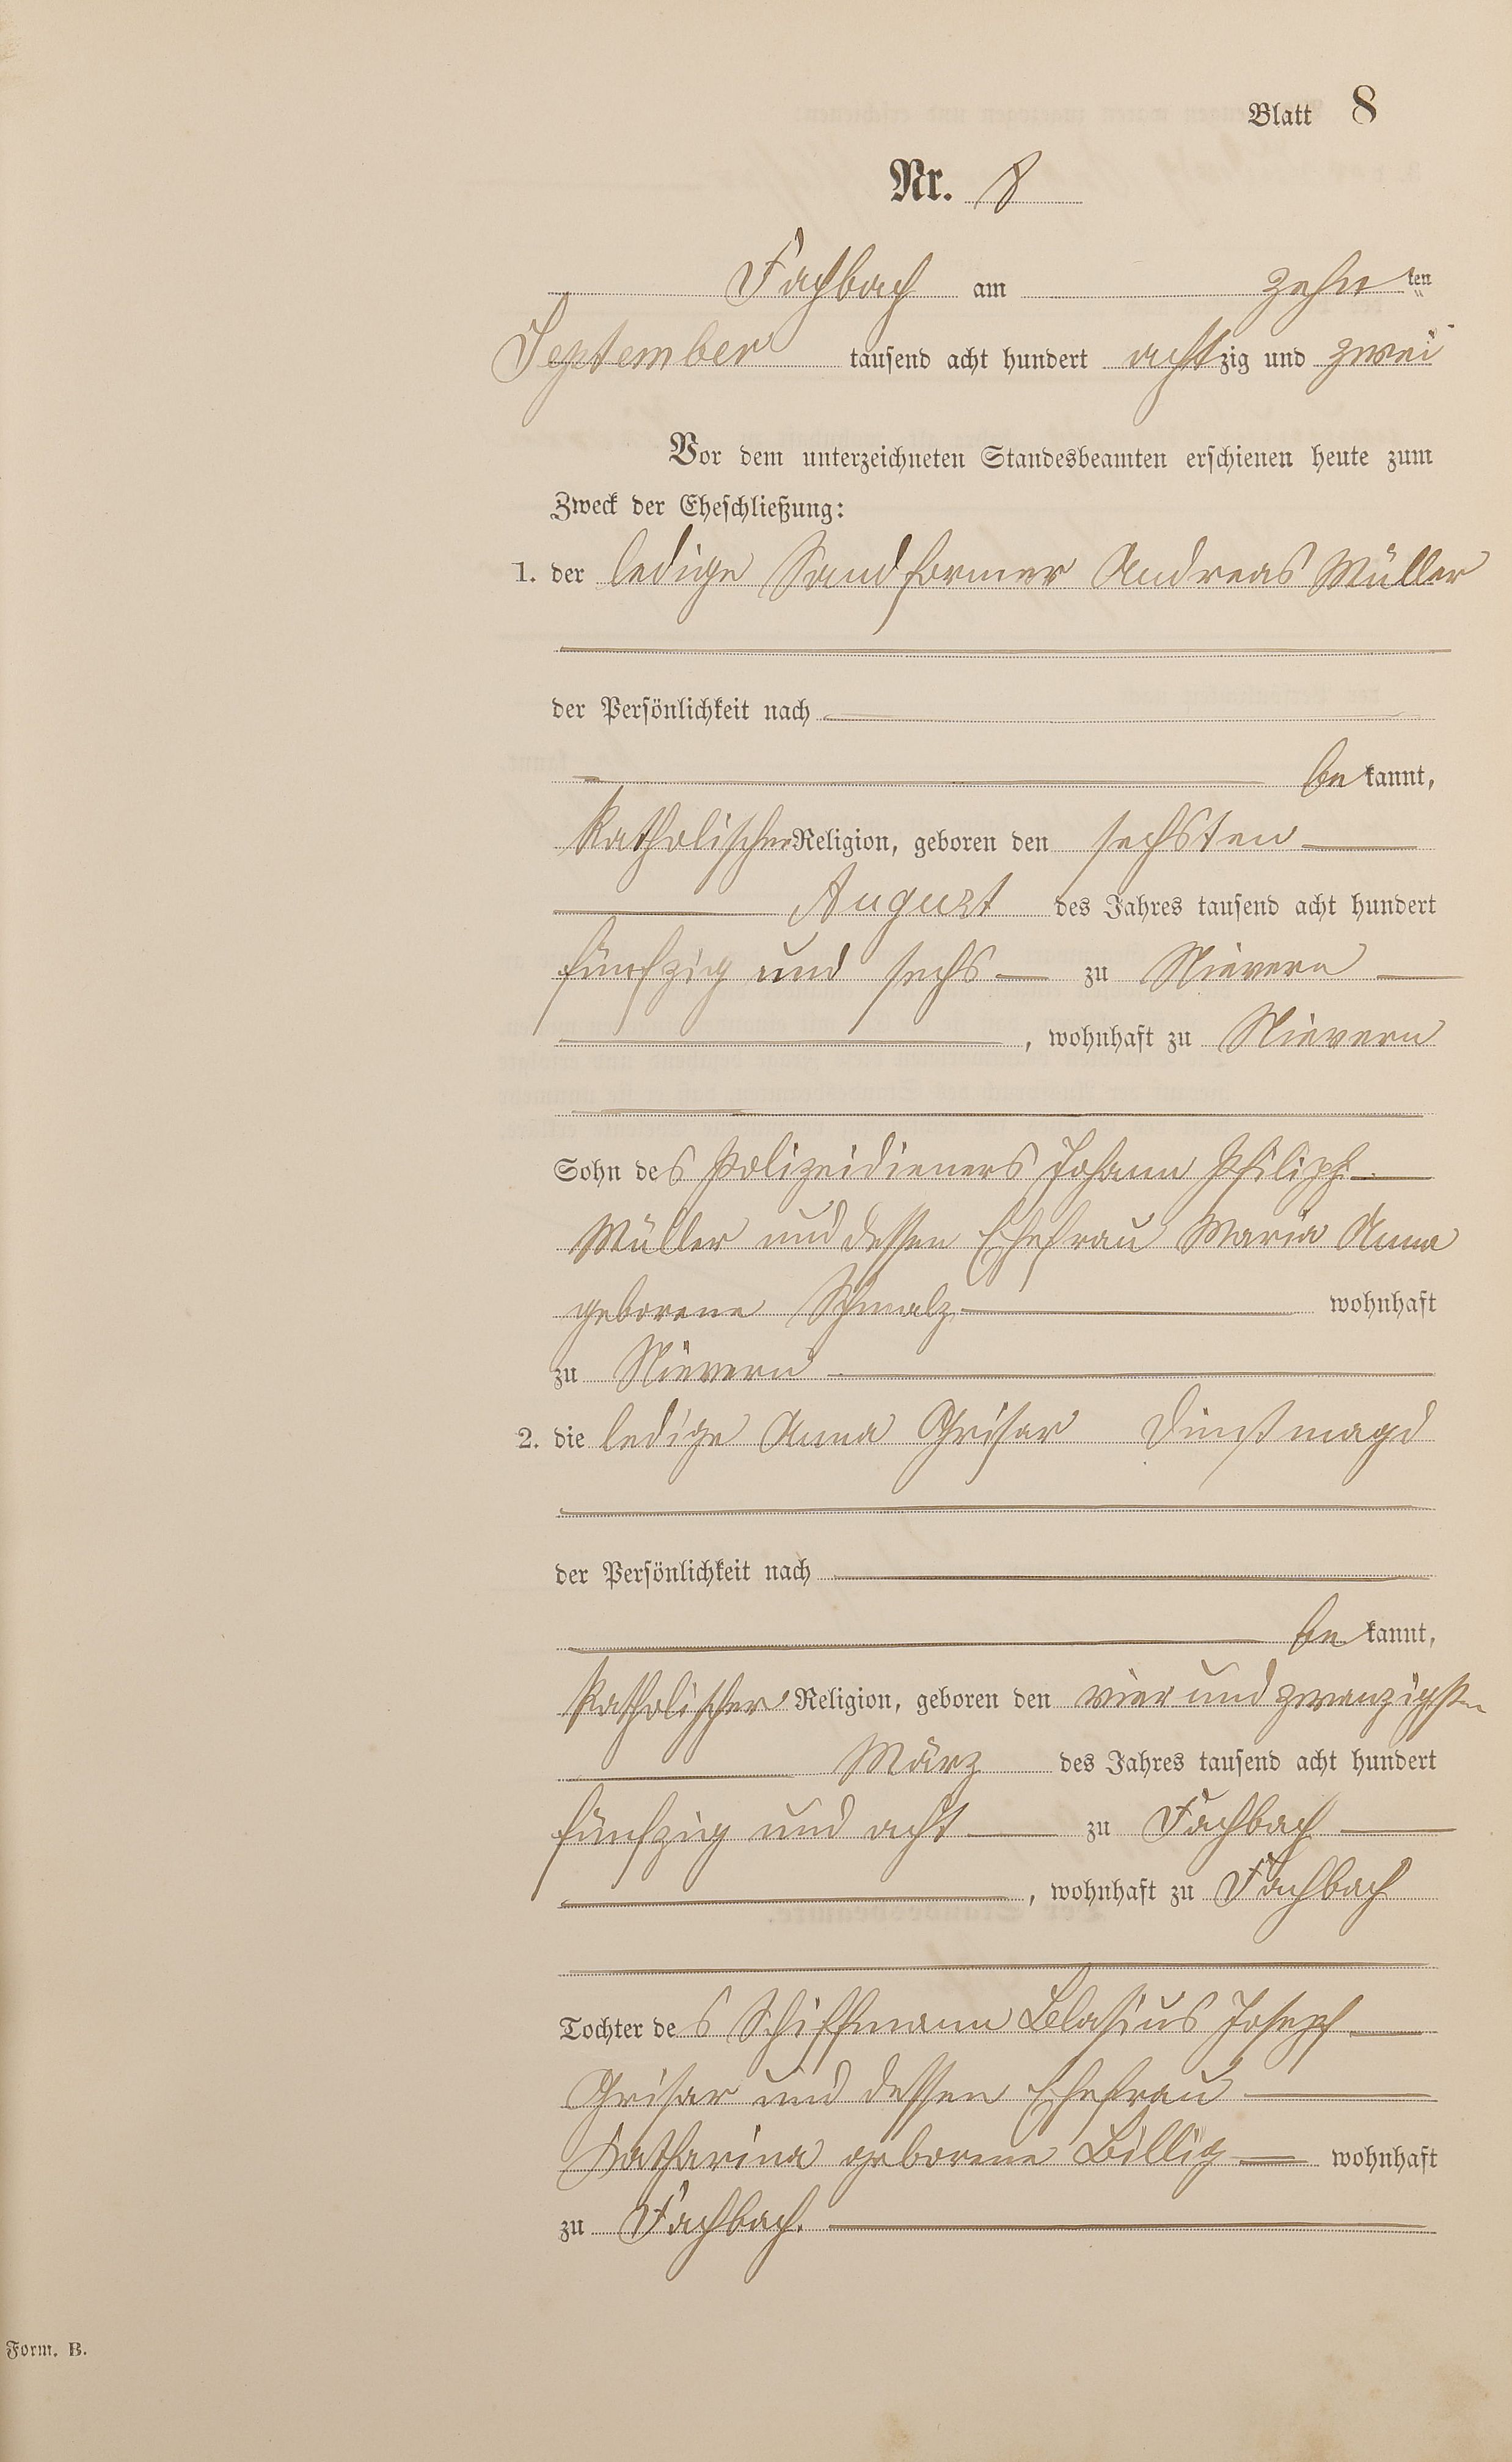 Blatt 8
Nr. 8
Fachbach am zehnten
September tausend acht hundert achtzig und zwei
Vor dem unterzeichneten Standesbeamten erschienen heute zum
Zweck der Eheschließung:
1. der ledige Sandformer Andreas Müller
der Persönlichkeit nach
bekannt,
katholischer Religion, geboren den sechsten
August des Jahres tausend acht hundert
fünfzig und sechs zu Nievern
, wohnhaft zu Nievern
Sohn des Polizeidieners Johann Philipp
Müller und dessen Ehefrau Maria Anna
geborene Schmalz wohnhaft
zu Nievern
2. die ledige Anna Grisar Dienstmagd
der Persönlichkeit nach
bekannt,
katholischer Religion, geboren den vier und zwanzigsten
März des Jahres tausend acht hundert
fünfzig und acht zu Fachbach
, wohnhaft zu Fachbach
Tochter des Schiffmann Blasius Joseph
Grisar und dessen Ehefrau
Katharina geborene Billig wohnhaft
zu Fachbach.
Form. B.